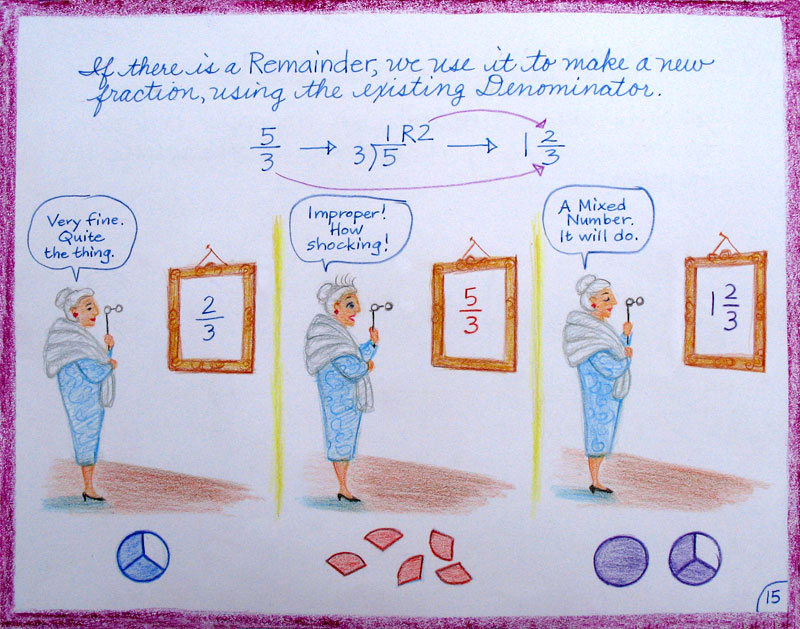 If there is a Remainder, we use it to make a new
fraction, using the existing Denominator.
5/3 → 3)5 1R2 → 1 2/3
Very fine.
Quite
the thing.
Improper!
How
shocking!
A Mixed
Number.
It will do.
2/3
5/3
1 2/3
15